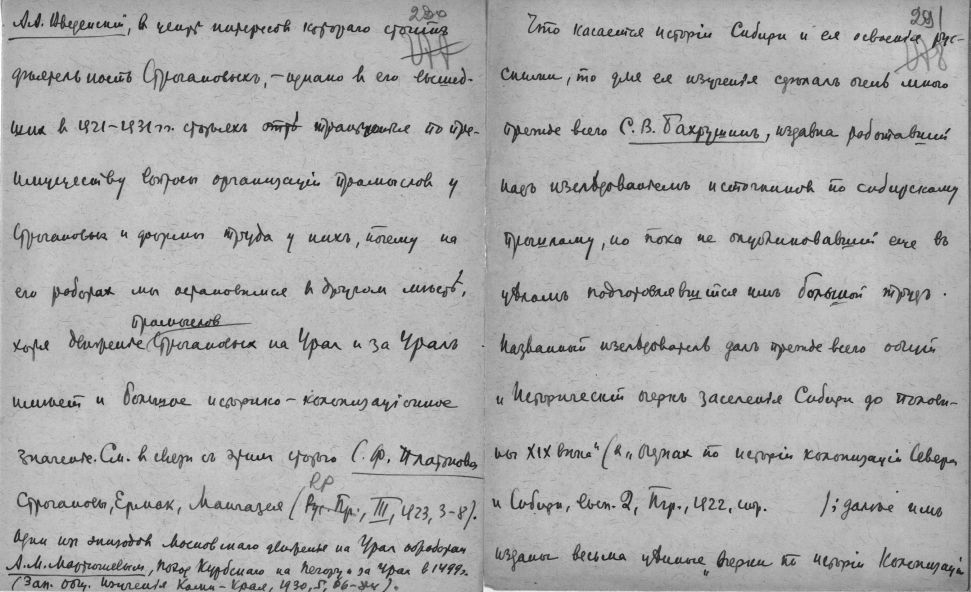 280
А.А. Введенский, в центре интересов котораго стоитъ
177
деятельность Строгановыхъ, – однако в его вышед-
ших в 1921–1931 гг. статьяхъ трактуются по пре-
имуществу вопросы организацiи промыслов у
Строгановых и формы труда у нихъ, почему на
его работах мы остановимся в другом месте,
промыслов
хотя движение Строгановых на Урал и за Уралъ
имеет и большое историко-колонизацiонное
значенiе. См. в связи съ этим статью С. Ф. Платонова
Строгановы, Ермак, Мангазея (Рус. Пр., III, 1923, 3–8).
Один из эпизодов московскаго движенья на Урал обработан
А.М. Мартюшевым, Поход Курбскаго на Печору и за Урал в 1499 г.
(Зап. общ. изучения Коми-края, 1930, 5, 66–74).
291
Что касается исторiи Сибири и ея освоенiя рус-
178
скими, то для ея изученiя сделалъ очень много
прежде всего С. В. Бахрушинъ, издавна работавшiй
надъ изследованiемъ источников по сибирскому
прошлому, но пока не опубликовавшiй еще въ
целомъ подготовлявшiйся имъ большой трудъ.
Названный изследователь далъ прежде всего общiй
и Историческiй очерк заселенiя Сибири до полови-
ны XIX века" (в „Очерках по исторiи колонизацiи Севера
и Сибири, вып. 2, Пгр., 1922, стр. ); далее имъ
изданы весьма ценные „Очерки по исторiи колонизацiи